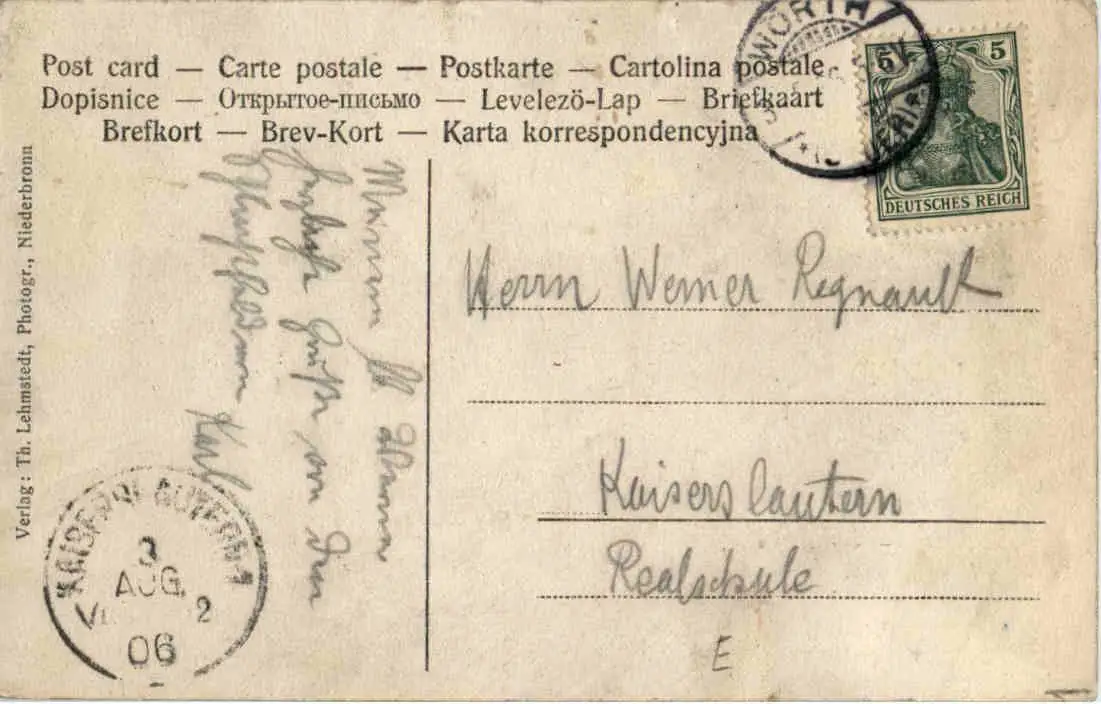 Post card — Carte postale — Postkarte — Cartolina postale
Dopisnice — Открытое-письмо — Levelező-Lap — Briefkaart
Brefkort — Brev-Kort — Karta korrespondencyjna
WÖRTH
5 5
DEUTSCHES REICH
Verlag: Th. Lehmstedt, Photogr., Niederbronn
Grüße von
Karl
Herrn Werner Regnault
Kaiserslautern
Realschule
E
KAISERSLAUTERN 1
3
AUG.
2
06